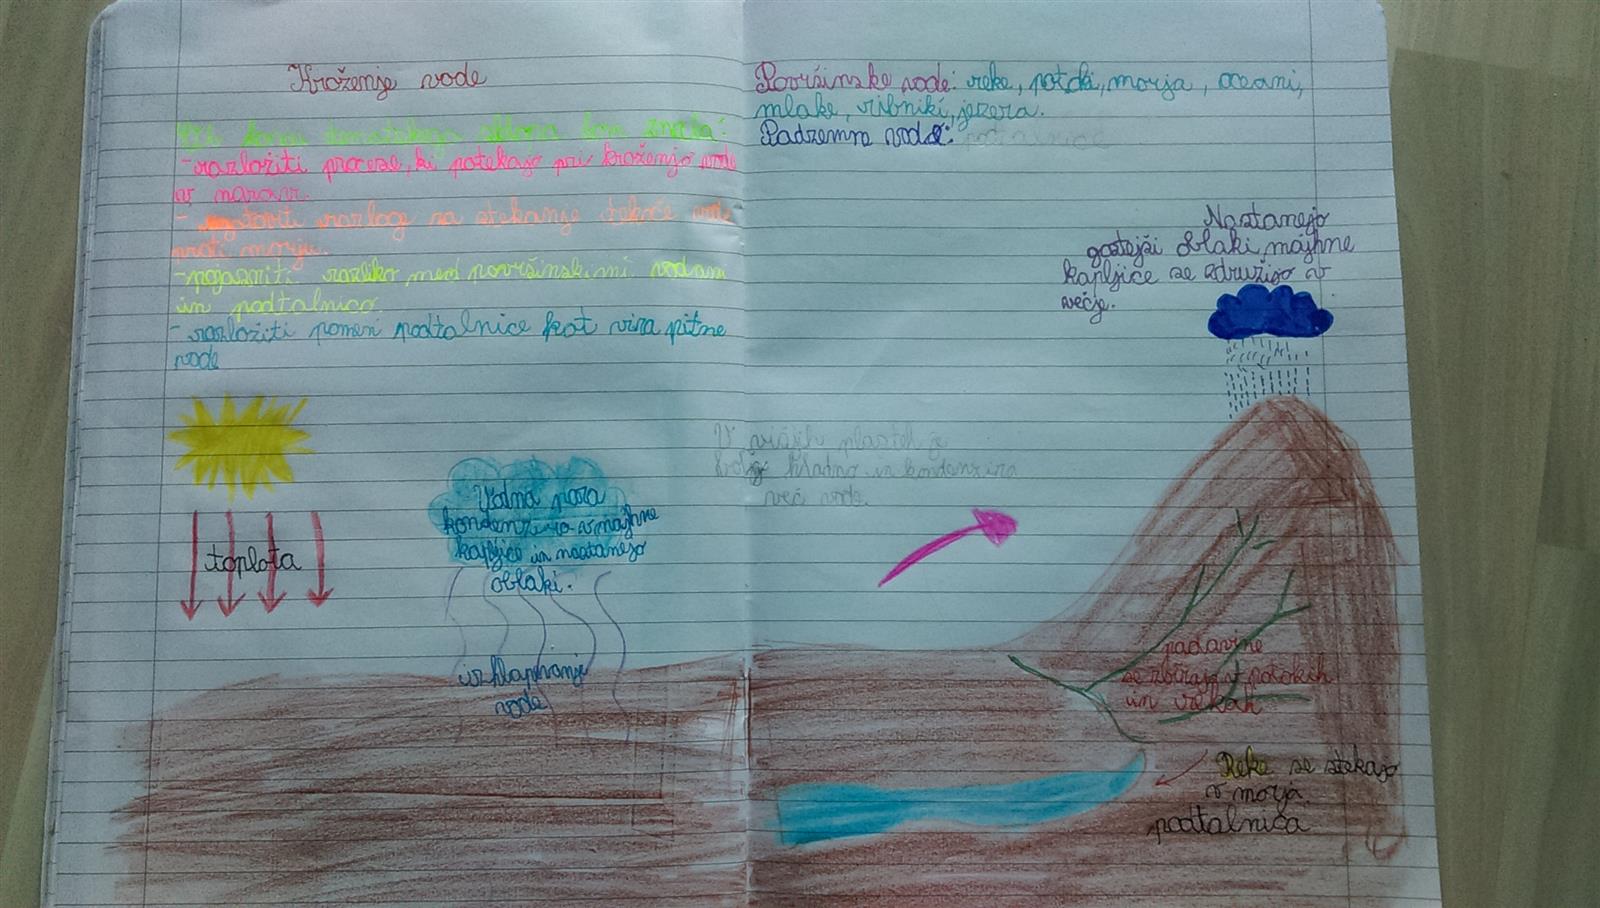 Kroženje vode
Ob koncu tematskega sklopa bom znala:
-razložiti procese, ki potekajo pri kroženjo vode
v naravi.
- ugotoviti razloge za stekanje tekoče vode
proti morju.
-pojasniti razliko med površinskimi vodami
in podtalnico.
- razložiti pomen podtalnice kot vira pitne
vode
Površinske vode: reke, potoki, morja, oceani,
mlake, ribniki, jezera.
Podzemne vode: podtalnice
Nastanejo
gostejši oblaki, majhne
kapljice se združijo v
večje.
V višjih plasteh je
bolj hladno in kondenzira
več vode.
toplota
Vodna para
kondenzira v majhne
kapljice in nastanejo
oblaki.
izhlapevanje
vode
padavine
se zbirajo v potokih
in rekah
Reke se stekajo
v morja
podtalnica